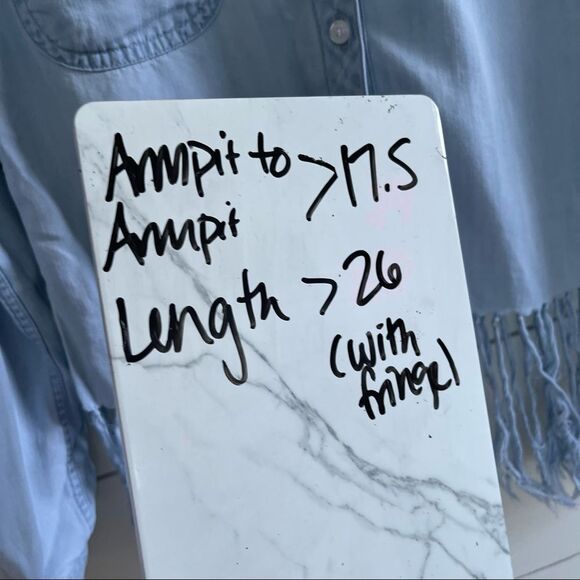 Armpit to > 17.5
Armpit
Length > 26
(with
fringe)